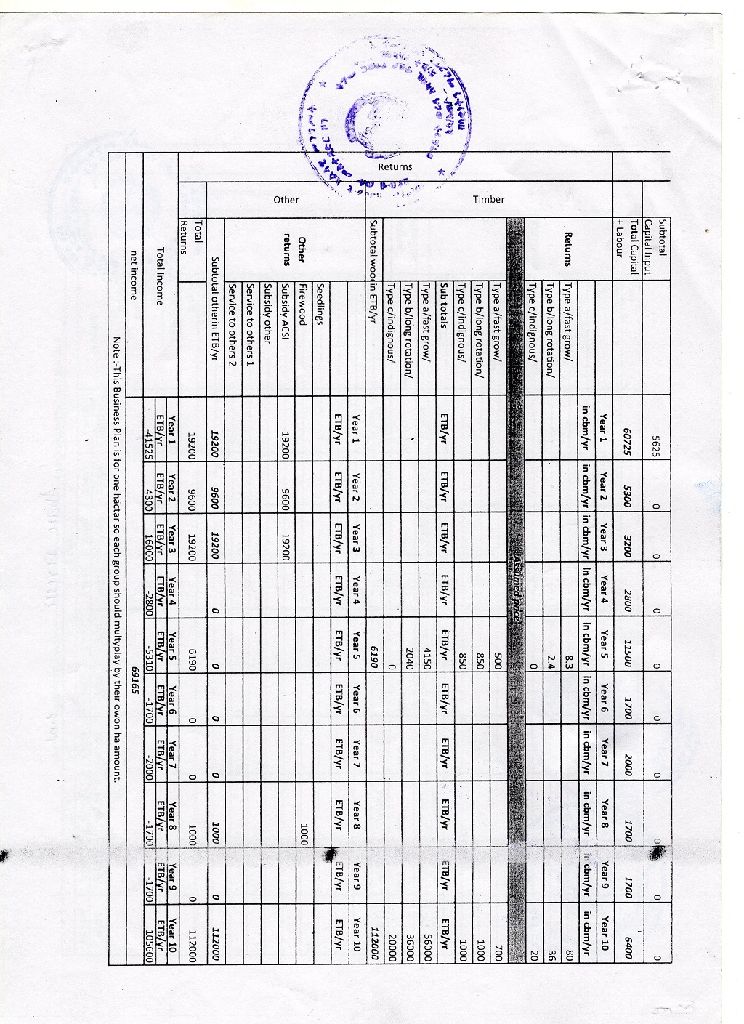 Subtotal Capital Input 5625 0 0 0 0 0 0 0 0 0
Total Capital + Labour 60725 5300 3200 2800 11500 1700 2000 1700 1700 6400
Returns
Timber
Returns
Year 1 Year 2 Year 3 Year 4 Year 5 Year 6 Year 7 Year 8 Year 9 Year 10
in cbm/yr in cbm/yr in cbm/yr in cbm/yr in cbm/yr in cbm/yr in cbm/yr in cbm/yr in cbm/yr in cbm/yr
Type a/fast grow/ 8.3 80
Type b/long rotation/ 2.4 36
Type c/indignous/ 0 20
Assumed price
Type a/fast grow/ 500 700
Type b/long rotation/ 850 1000
Type c/indignous/ 850 1000
Sub totals ETB/yr ETB/yr ETB/yr ETB/yr ETB/yr ETB/yr ETB/yr ETB/yr ETB/yr ETB/yr
Type a/fast grow/ 4150 56000
Type b/long rotation/ 2040 36000
Type c/indignous/ 0 20000
Subtotal wood in ETB/yr 6190 112000
Other
Year 1 Year 2 Year 3 Year 4 Year 5 Year 6 Year 7 Year 8 Year 9 Year 10
ETB/yr ETB/yr ETB/yr ETB/yr ETB/yr ETB/yr ETB/yr ETB/yr ETB/yr ETB/yr
Other returns
Seedlings
Firewood 1000
Subsidy ACSI 19200 9600 19200
Subsidy other
Service to others 1
Service to others 2
Subtotal other in ETB/yr 19200 9600 19200 0 0 0 0 1000 0 112000
Total Returns 19200 9600 19200 6190 0 0 1000 0 112000
Year 1 Year 2 Year 3 Year 4 Year 5 Year 6 Year 7 Year 8 Year 9 Year 10
Total Income ETB/yr ETB/yr ETB/yr ETB/yr ETB/yr ETB/yr ETB/yr ETB/yr ETB/yr ETB/yr
-41525 4300 16000 -2800 -5310 -1700 -2000 -1700 -1700 105600
net income 69165
Note :-This Business Plan is for one hactar so each group should multyplay by their owon ha amount.